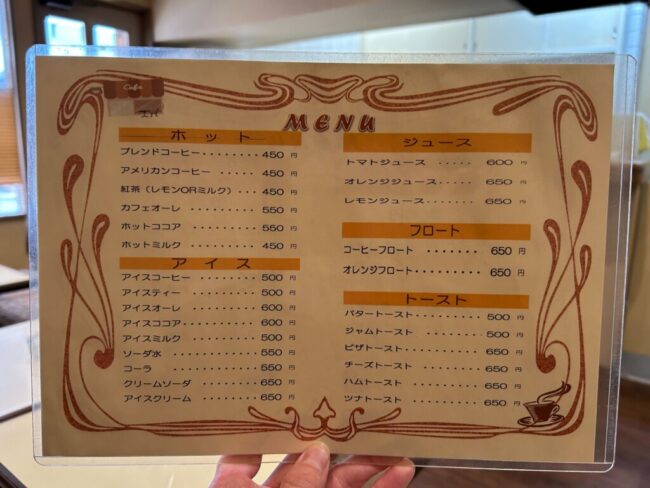 Cafe
MENU
ホット
ブレンドコーヒー・・・・・・・・450円
アメリカンコーヒー ・・・・・450円
紅茶（レモンORミルク）・・・450円
カフェオーレ ・・・・・・・・550円
ホットココア ・・・・・・・・550円
ホットミルク ・・・・・・・・450円
アイス
アイスコーヒー・・・・・・・・500円
アイスティー ・・・・・・・・500円
アイスオーレ ・・・・・・・・600円
アイスココア・・・・・・・・・600円
アイスミルク ・・・・・・・・500円
ソーダ水 ・・・・・・・・・・550円
コーラ ・・・・・・・・・・550円
クリームソーダ ・・・・・・650円
アイスクリーム ・・・・・・650円
ジュース
トマトジュース ・・・・・ 600円
オレンジジュース・・・・・ 650円
レモンジュース・・・・・・ 650円
フロート
コーヒーフロート ・・・・・・・ 650円
オレンジフロート・・・・・・・・ 650円
トースト
バタートースト・・・・・・・・500円
ジャムトースト ・・・・・・500円
ピザトースト・・・・・・・・・650円
チーズトースト ・・・・・・650円
ハムトースト ・・・・・・・650円
ツナトースト ・・・・・・・650円